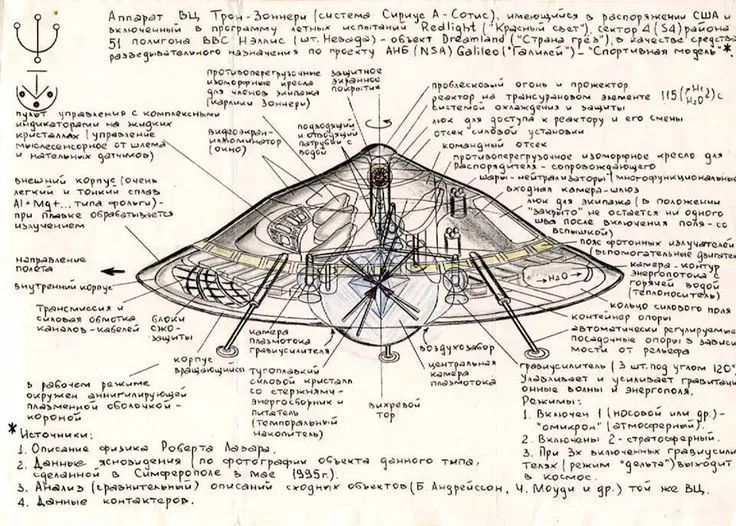 Аппарат ВЦ Трон-Зоннери (система Сириус А-Сотис), имеющийся в распоряжении США и
включенный в программу летных испытаний Redlight ("Красный свет"), сектор Δ (S4) района
51 полигона ВВС Нэллис (шт. Невада) - объект Dreamland ("Страна грёз"), в качестве средства
разведывательного назначения по проекту АНБ (NSA) Galileo ("Галилей") - "Спортивная модель" *
противоперегрузочные
изоморфные кресла
для членов экипажа
(карлики Зоннери)
защитное
экранное
покрытие
проблесковый огонь и прожектор
реактор на трансурановом элементе 115
с системой охлаждения и защиты
люк для доступа к реактору и его смены
отсек силовой установки
командный отсек
противоперегрузочное изоморфное кресло для
Распорядителя - сопровождающего
шары-нейтрализаторы (многофункциональные)
входная камера-шлюз
люк для экипажа (в положении
"закрыто" не остается ни одного
шва после включения поля - со
вспышкой)
пояс фотонных излучателей
(вспомогательные двигатели)
камера - контур
энергопотока
горячей водой
(теплоноситель)
кольцо силового поля
контейнер опоры
автоматически регулируемые
посадочные опоры в зависи
мости от рельефа
пульт управления с комплексными
индикаторами на жидких
кристаллах (управление
мыслесенсорное от шлема
и натальных датчиков)
видеоэкран-
иллюминатор
(окно)
подводящий
и отводящий
патрубки с
водой
внешний корпус (очень
легкий и тонкий сплав
Al+Mg+... типа фольги) -
при плавке обрабатывается
излучением
направление
полета
внутренний корпус
H₂O
Трансмиссия и
силовая обмотка
каналов-кабелей
блоки
СЖО-
защиты
корпус
вращающийся
камера
плазмотока
гравиусилителя
тугоплавкий
силовой кристалл
со стержнями-
энергосборник и
питатель
(темпоральный
накопитель)
вихревой
тор
воздухозабор
центральная
камера
плазмотока
гравиусилитель (3 шт. под углом 120°
Улавливает и усиливает гравитаци
онные волны и энергополя.
Режимы:
1. Включен 1 (носовой или др.) -
"омикрон" (атмосферный).
2. Включены 2 - стратосферный.
3. При 3х включенных гравиусили
телях (режим "дельта") выходит
в космос.
в рабочем режиме
окружен аннигилирующей
плазменной оболочкой -
короной
* Источники:
1. Описание физика Роберта Лазара.
2. Данные ясновидения (по фотографии объекта данного типа,
сделанной в Симферополе в мае 1995г.).
3. Анализ (сравнительный) описаний сходных объектов (Б. Андрейссон, Ч. Моуди и др.) той же ВЦ.
4. Данные контактеров.